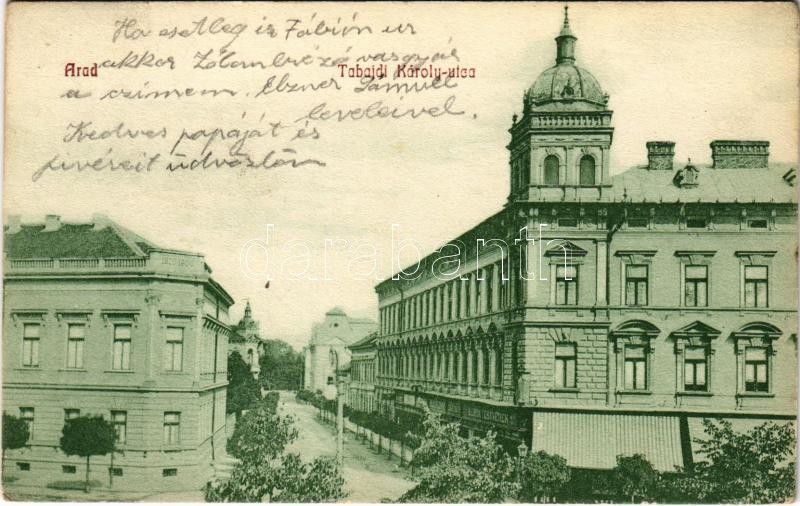 Ha esetleg ír Fábián úr
akkor Zólambrózó vasgyár
a czimem. Elzner Sámuel
leveleivel.
Kedves papáját és
üdvözlöm
Arad
Tabajdi Károly-utca
darabanth